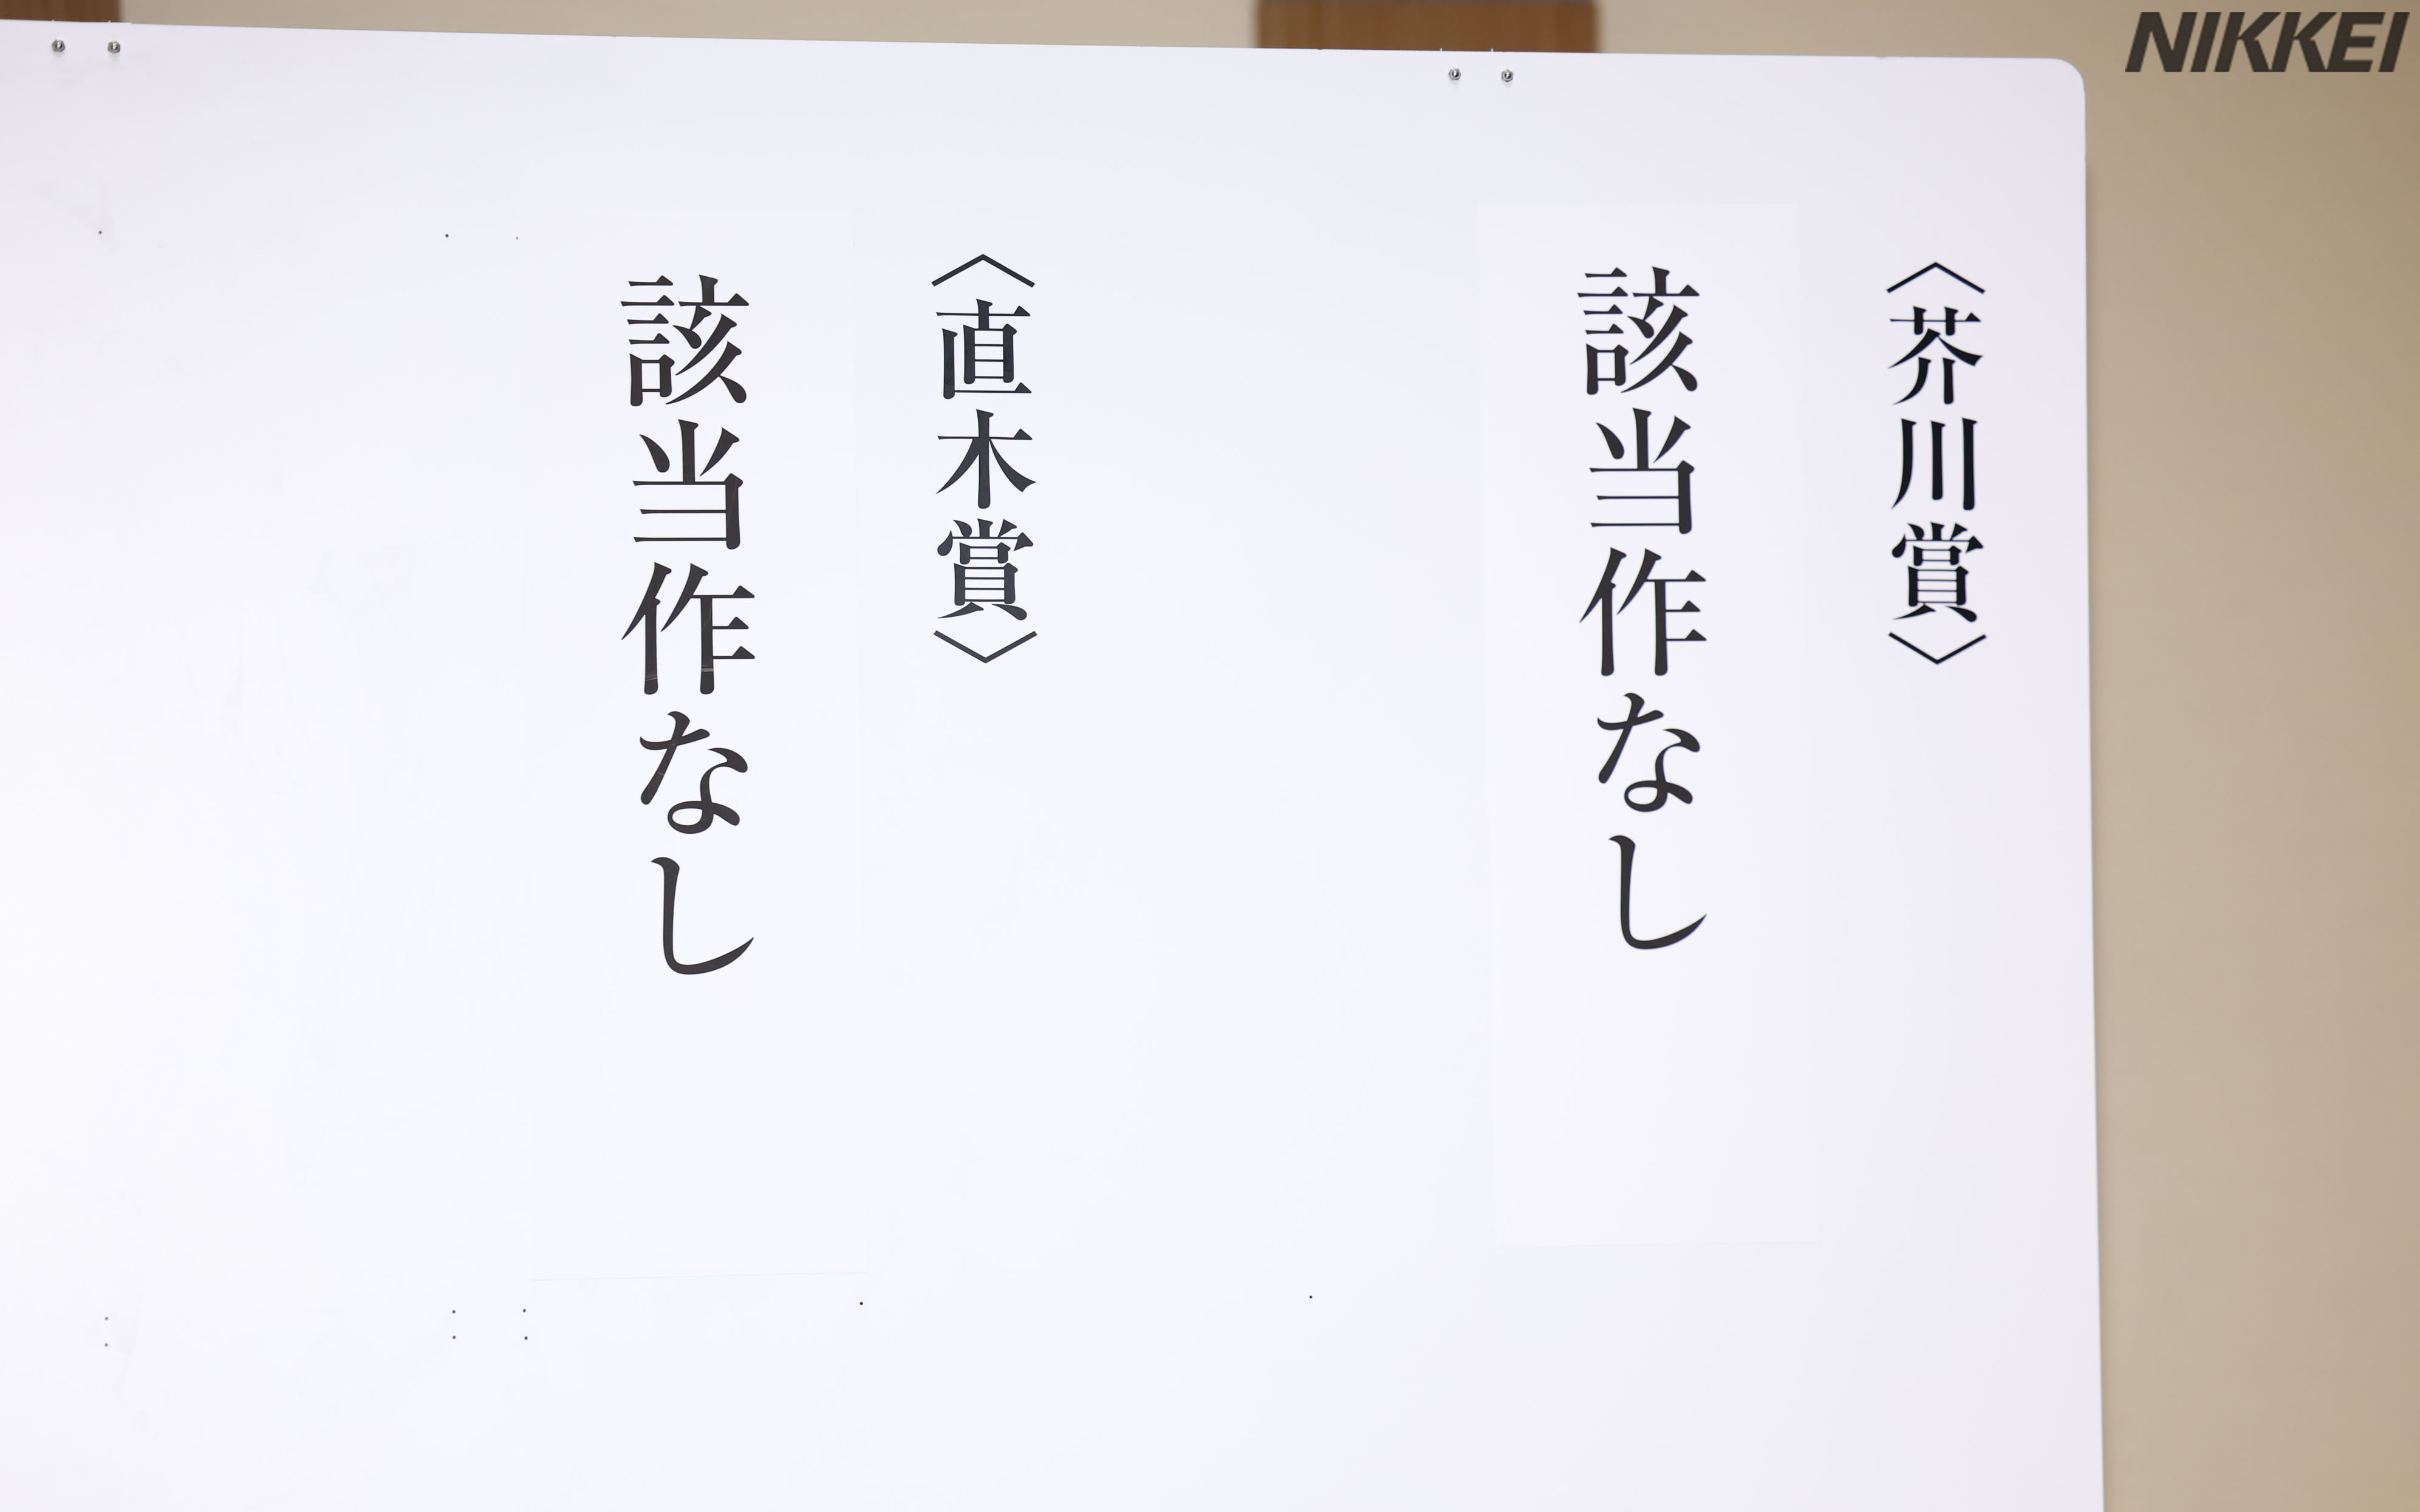 〈芥川賞〉
該当作なし
〈直木賞〉
該当作なし
NIKKEI